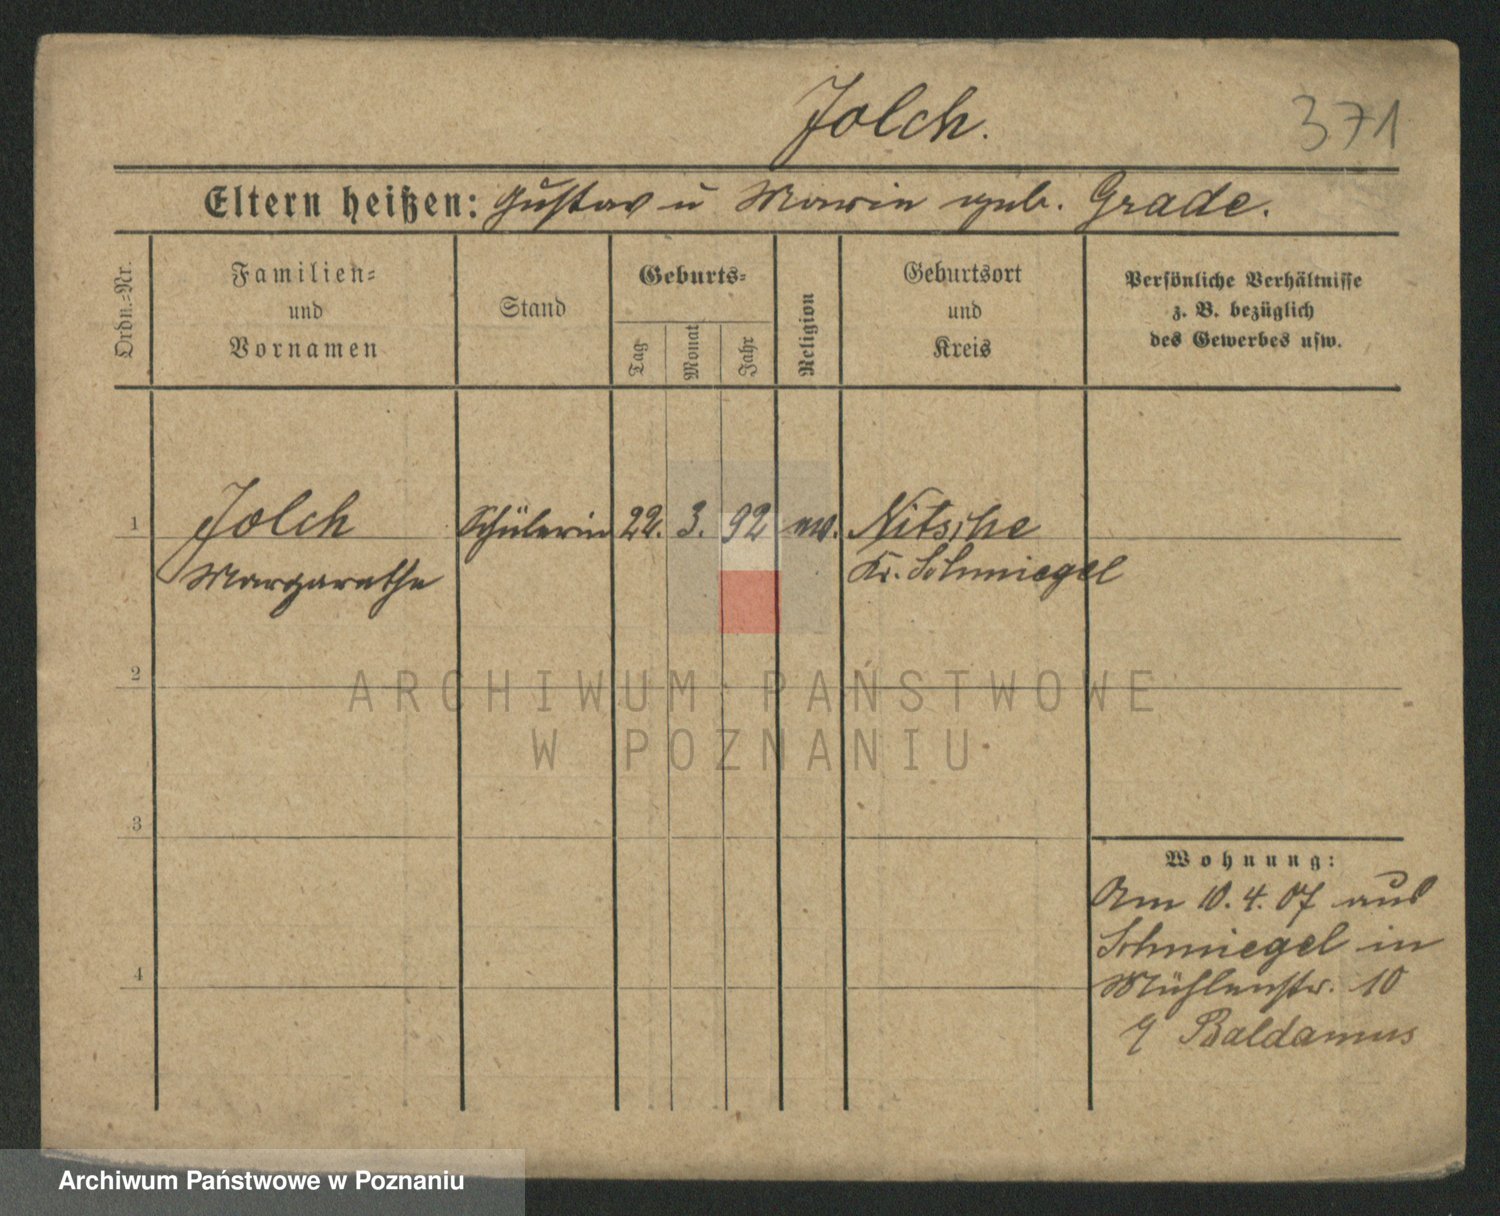 Jolch.
371
Eltern heißen: Gustav u Marie geb. Grade.
Ordn.=Nr.
Familien=
und
Vornamen
Stand
Geburts=
Tag
Monat
Jahr
Religion
Geburtsort
und
Kreis
Persönliche Verhältnisse
z. B. bezüglich
des Gewerbes usw.
1 Jolch Schülerin 22. 3. 92 ev. Nitsche
Margarethe Kr. Schmiegel
2
ARCHIWUM PAŃSTWOWE
W POZNANIU
3
Wohnung:
Am 10. 4. 07 aus
Schmiegel in
4
Mühlenstr. 10
Baldamus
Archiwum Państwowe w Poznaniu